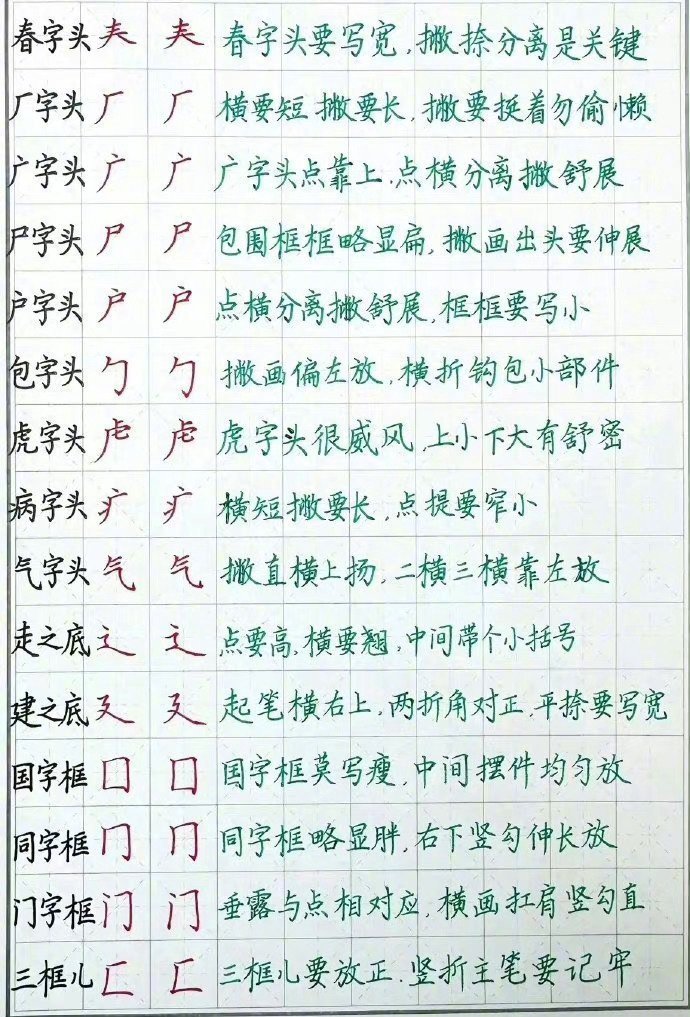 春字头 𡗗 𡗗 春字头要写宽,撇捺分离是关键
厂字头 厂 厂 横要短 撇要长,撇要挺着勿偷懒
广字头 广 广 广字头点靠上,点横分离撇舒展
尸字头 尸 尸 包围框框略显扁,撇画出头要伸展
户字头 户 户 点横分离撇舒展,框框要写小
包字头 勹 勹 撇画偏左放,横折钩包小部件
虎字头 虍 虍 虎字头很威风,上小下大有舒密
病字头 疒 疒 横短撇要长,点提要窄小
气字头 气 气 撇直横上扬,二横三横靠左放
走之底 辶 辶 点要高,横要翘,中间带个小括号
建之底 廴 廴 起笔横右上,两折角对正,平捺要写宽
国字框 囗 囗 国字框莫写瘦,中间摆件均匀放
同字框 冂 冂 同字框略显胖,右下竖勾伸长放
门字框 门 门 垂露与点相对应,横画扛肩竖勾直
三框儿 匚 匚 三框儿要放正,竖折主笔要记牢